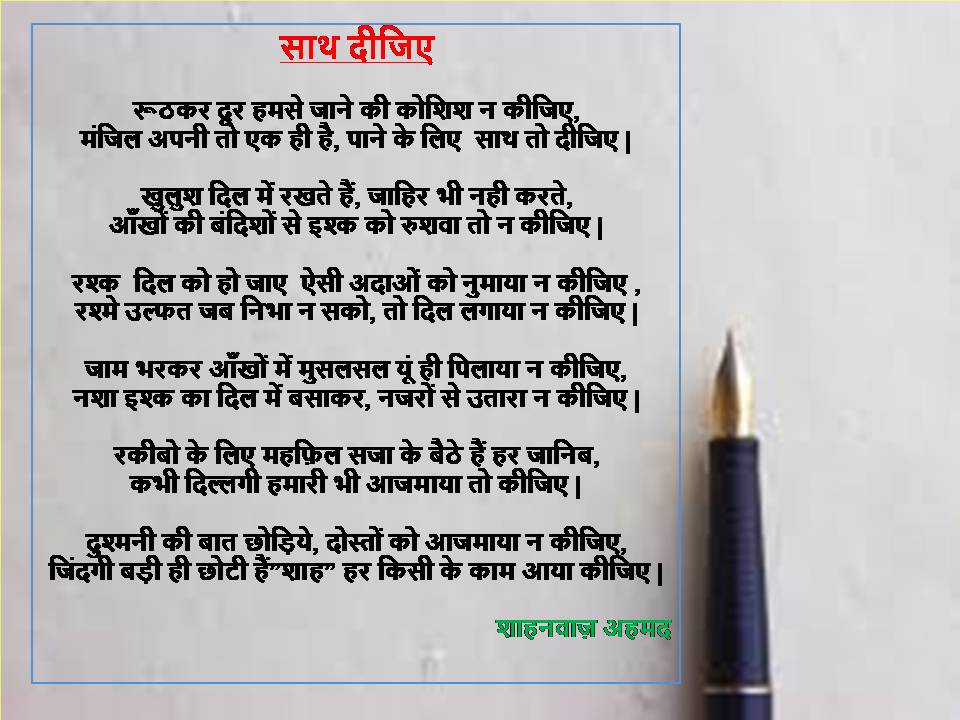 साथ दीजिए
रूठकर दूर हमसे जाने की कोशिश न कीजिए,
मंजिल अपनी तो एक ही है, पाने के लिए साथ तो दीजिए |
खुलुश दिल में रखते हैं, जाहिर भी नही करते,
आँखों की बंदिशों से इश्क को रुशवा तो न कीजिए |
रश्क दिल को हो जाए ऐसी अदाओं को नुमाया न कीजिए ,
रश्मे उल्फत जब निभा न सको, तो दिल लगाया न कीजिए |
जाम भरकर आँखों में मुसलसल यूं ही पिलाया न कीजिए,
नशा इश्क का दिल में बसाकर, नजरों से उतारा न कीजिए |
रकीबो के लिए महफ़िल सजा के बैठे हैं हर जानिब,
कभी दिल्लगी हमारी भी आजमाया तो कीजिए |
दुश्मनी की बात छोड़िये, दोस्तों को आजमाया न कीजिए,
जिंदगी बड़ी ही छोटी हैं”शाह” हर किसी के काम आया कीजिए |
शाहनवाज़ अहमद